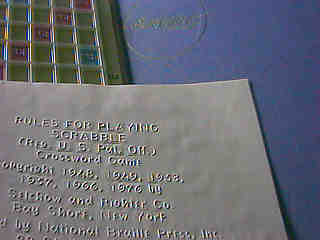 RULES FOR PLAYING
SCRABBLE
(Reg. U. S. Pat. Off.)
Crossword Game
Copyright 1948, 1949, 1953,
1957, 1966, 1976 by
Selchow and Righter Co.
Bay Shore, New York
d by National Braille Press, Inc.